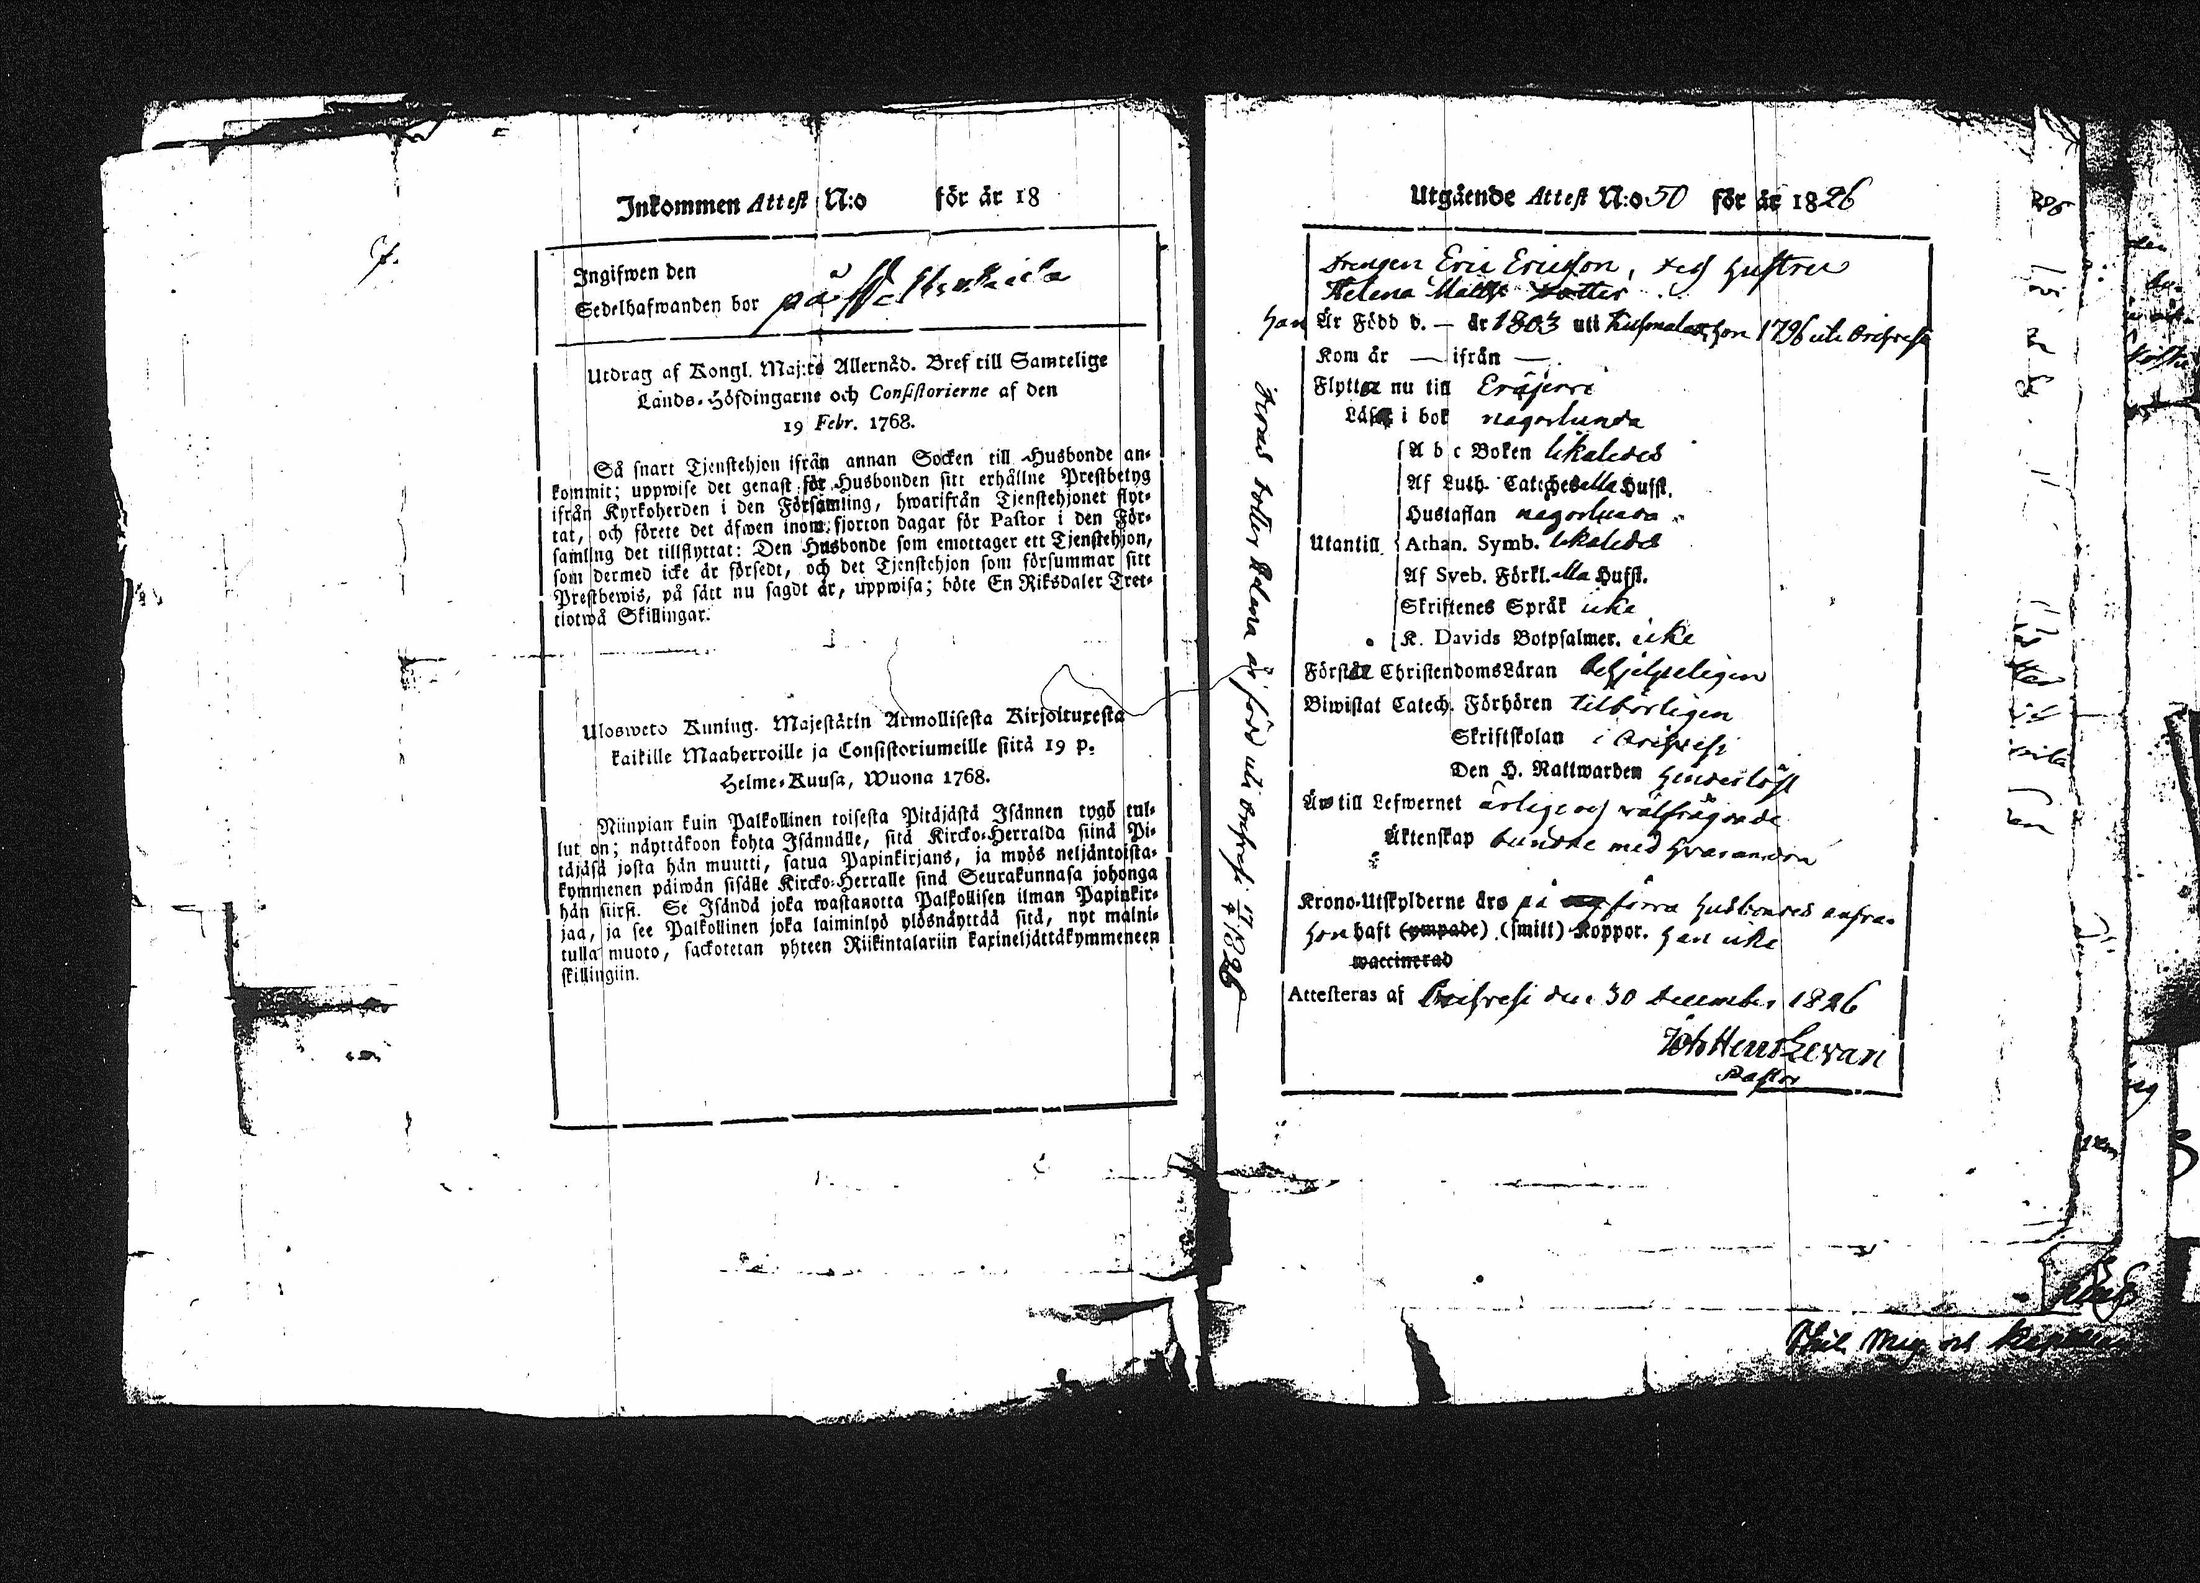 Inkommen Attest N:o för år 18
Ingifwen den
Sedelhafwanden bor på
Utdrag af Kongl. Maj:ts Allernåd. Bref till Samtelige
Lands-Höfdingarne och Consistorierne af den
19 Febr. 1768.
Så snart Tjenstehjon ifrån annan Socken till Husbonde an-
kommit; uppwise det genast för Husbonden sitt erhållne Prestbetyg
ifrån Kyrkoherden i den Församling, hwarifrån Tjenstehjonet flyt-
tat, och förete det äfwen inom fjorton dagar för Pastor i den För-
samling det tillflyttat: Den Husbonde som emottager ett Tjenstehjon,
som dermed icke är försedt, och det Tjenstehjon som försummar sitt
Prestbewis, på sätt nu sagdt är, uppwisa; böte En Riksdaler Tret-
tiotwå Skillingar.
Ulosweto Kuning. Majestätin Armollisesta Kirjoituxesta
kaikille Maaherroille ja Consistoriumeille siitä 19 p.
Helme-Kuusa, Wuona 1768.
Niinpian kuin Palkollinen toisesta Pitäjästä Isännen tygö tul-
lut on; näyttäkoon kohta Isännälle, sitä Kircko-Herralda siinä Pi-
täjäsä josta hän muutti, saatua Papinkirjans, ja myös neljäntoista-
kymmenen päiwän sisälle Kircko-Herralle sinä Seurakunnasa johonga
hän siirsi. Se Isändä joka wastanotta Palkollisen ilman Papinkir-
jaa, ja see Palkollinen joka laiminlyö ylösnäyttää sitä, nyt maini-
tulla muoto, sackotetan yhteen Riikintalariin kaxineljättäkymmeneen
skillingiin.
Utgående Attest N:o 50 för år 1826
Drengen Eric Ericsson, och hustru
Helena Matts dotter
Han Är Född d. — år 1803 uti Kuhmalax, hon 1796 uti Orihvesi
Kom år — ifrån —
Flyttar nu till Eräjervi
Läser i bok någorlunda
A b c Boken likaledes
Af Luth. Cateches alla Hufst.
Hustaflan någorlunda
Utantill Athan. Symb. likaledes
Af Sveb. Förkl. alla Hufst.
Skriftenes Språk icke
K. Davids Botpsalmer. icke
Förstår ChristendomsLäran behjelpeligen
Biwistat Catech. Förhören tilbörligen
Skriftskolan i Orihvesi
Den H. Nattwarden hinderlöst
Är till Lefwernet ärlige och välfrägdade
Äktenskap bundne med hvarandra
Krono-Utskylderne äro på förra husbondes
hon haft (ympade) (smitt) Koppor. han icke
waccinerad
Attesteras af Orihvesi den 30 December 1826
Joh Henr Levan
Pastor
deras dotter Helena är född uti Orihvesi 1826